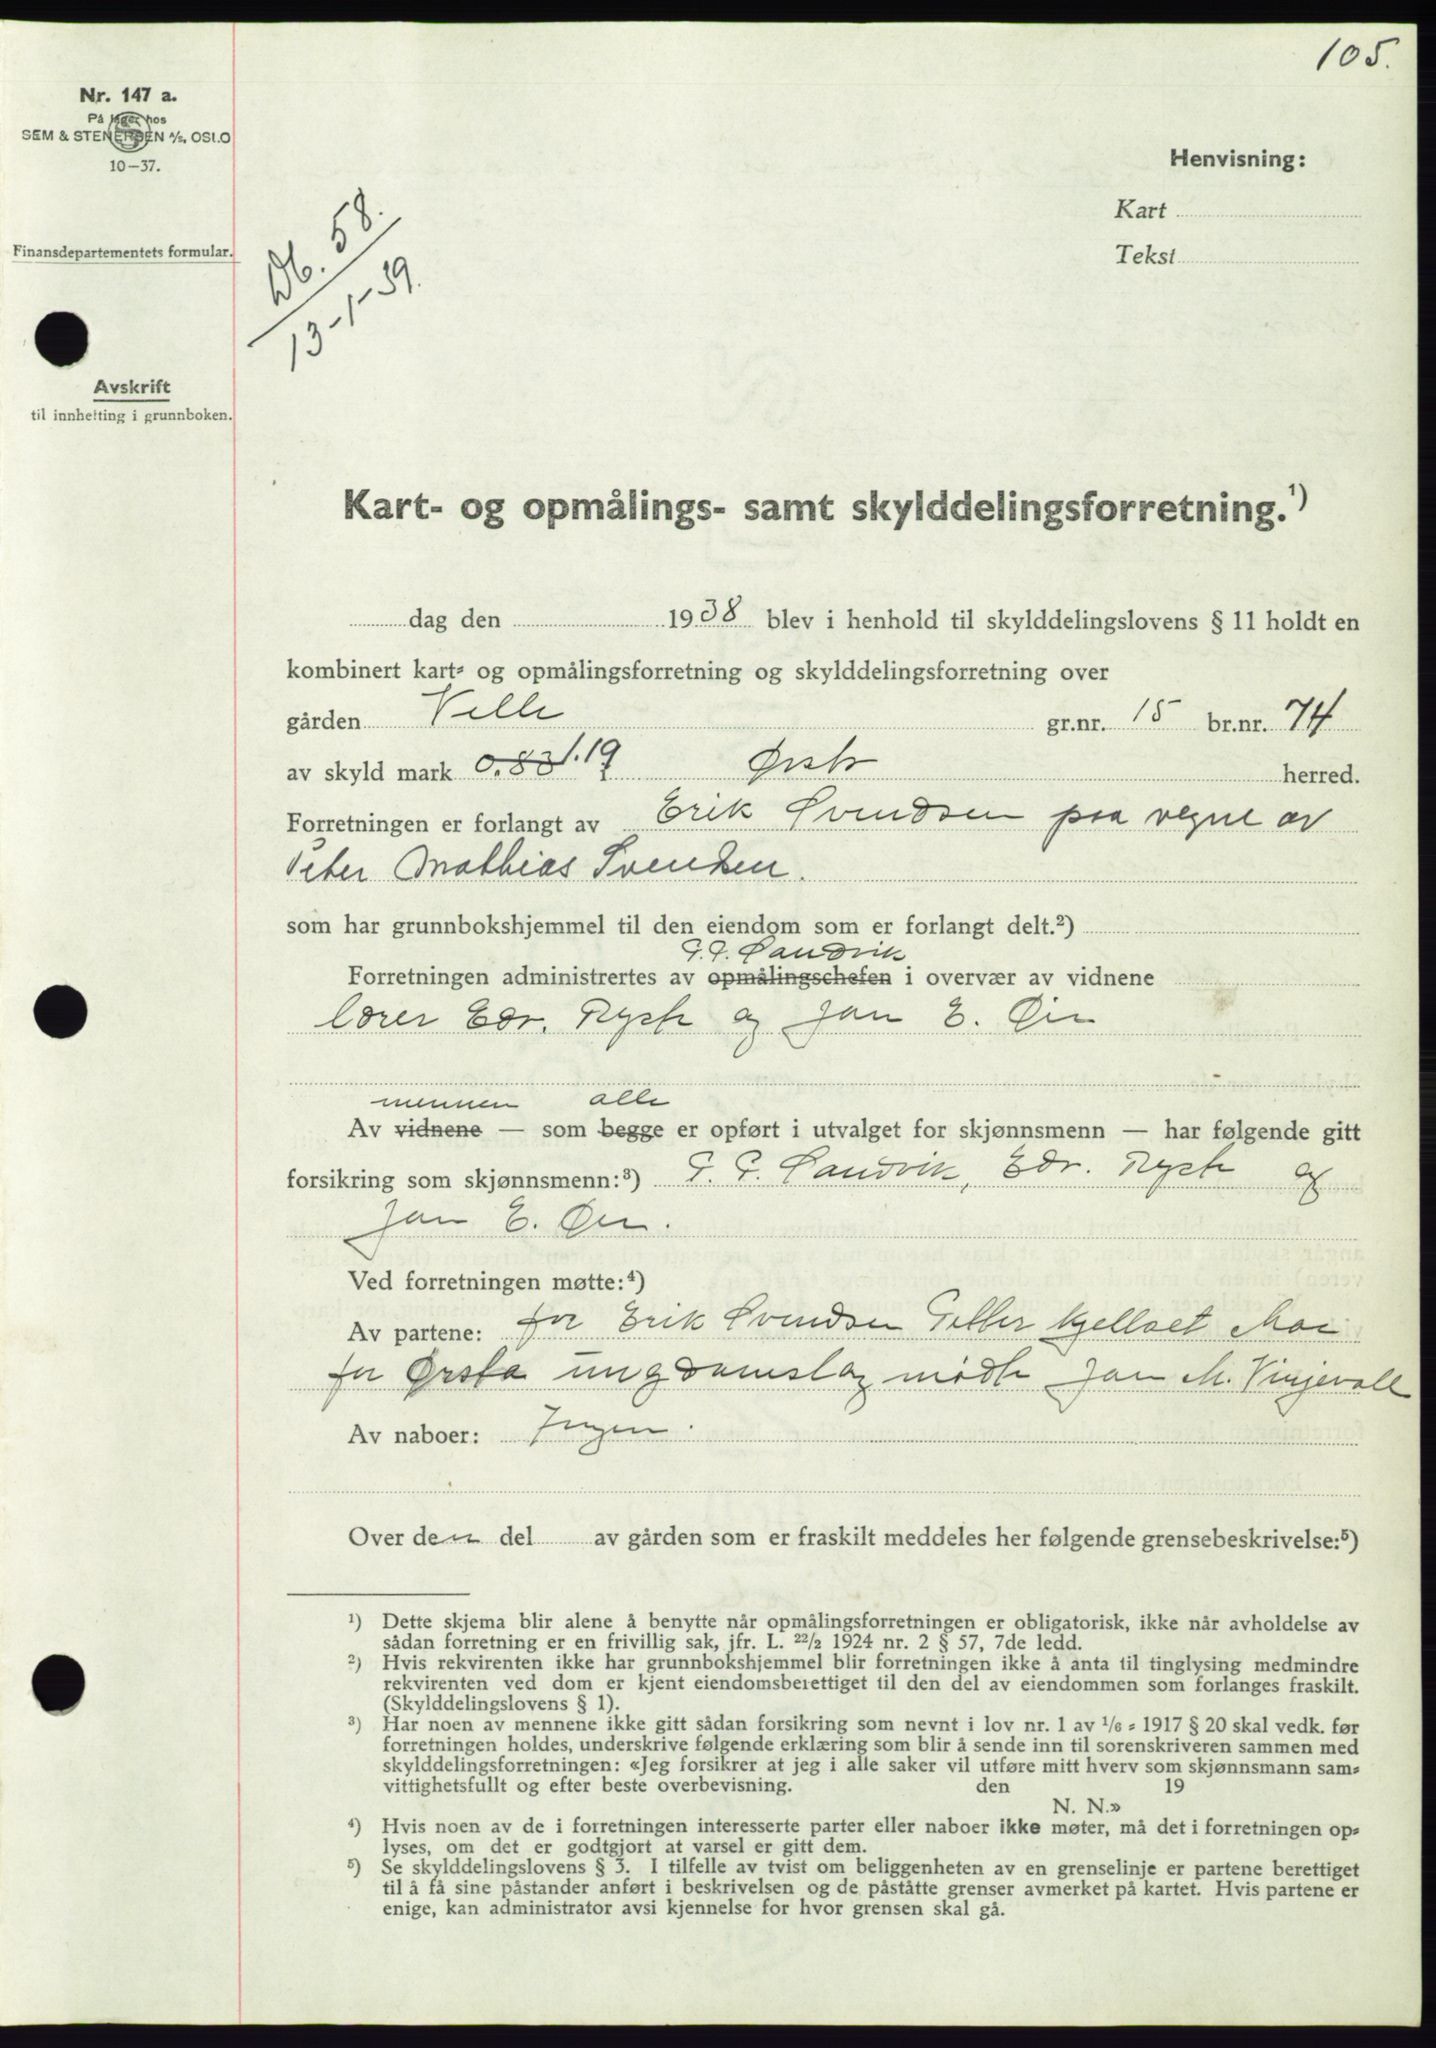 105.
Nr. 147 a.
På lager hos
SEM & STENERSEN A/S, OSLO
10-37.
Henvisning:
Kart
Tekst
Finansdepartementets formular.
Db. 58.
13-1-39.
Avskrift
til innhefting i grunnboken.
Kart- og opmålings- samt skylddelingsforretning.¹)
dag den 1938 blev i henhold til skylddelingslovens § 11 holdt en
kombinert kart- og opmålingsforretning og skylddelingsforretning over
gården Velle gr.nr. 15 br.nr. 74
av skyld mark 0.83 1.19 Ørsta herred.
Forretningen er forlangt av Erik Svendsen paa vegne av
Peter Mathias Svendsen.
som har grunnbokshjemmel til den eiendom som er forlangt delt.²)
G. G. Sandvik
Forretningen administrertes av opmålingschefen i overvær av vidnene
lærer Edv. Ryste og Jon E. Øie
mennen alle
Av vidnene — som begge er opført i utvalget for skjønnsmenn — har følgende gitt
forsikring som skjønnsmenn:³) G. G. Sandvik, Edv. Ryste og
Jon E. Øie.
Ved forretningen møtte:⁴)
Av partene: for Erik Svendsen Petter Kjellaet Moe
for Ørsta ungdomslag mødte Jon M. Vinjevoll
Av naboer: Ingen.
Over den del av gården som er fraskilt meddeles her følgende grensebeskrivelse:⁵)
¹) Dette skjema blir alene å benytte når opmålingsforretningen er obligatorisk, ikke når avholdelse av
sådan forretning er en frivillig sak, jfr. L. 22/2 1924 nr. 2 § 57, 7de ledd.
²) Hvis rekvirenten ikke har grunnbokshjemmel blir forretningen ikke å anta til tinglysing medmindre
rekvirenten ved dom er kjent eiendomsberettiget til den del av eiendommen som forlanges fraskilt.
(Skylddelingslovens § 1).
³) Har noen av mennene ikke gitt sådan forsikring som nevnt i lov nr. 1 av 1/6 - 1917 § 20 skal vedk. før
forretningen holdes, underskrive følgende erklæring som blir å sende inn til sorenskriveren sammen med
skylddelingsforretningen: «Jeg forsikrer at jeg i alle saker vil utføre mitt hverv som skjønnsmann sam-
vittighetsfullt og efter beste overbevisning. den 19
N. N.»
⁴) Hvis noen av de i forretningen interesserte parter eller naboer ikke møter, må det i forretningen op-
lyses, om det er godtgjort at varsel er gitt dem.
⁵) Se skylddelingslovens § 3. I tilfelle av tvist om beliggenheten av en grenselinje er partene berettiget
til å få sine påstander anført i beskrivelsen og de påståtte grenser avmerket på kartet. Hvis partene er
enige, kan administrator avsi kjennelse for hvor grensen skal gå.